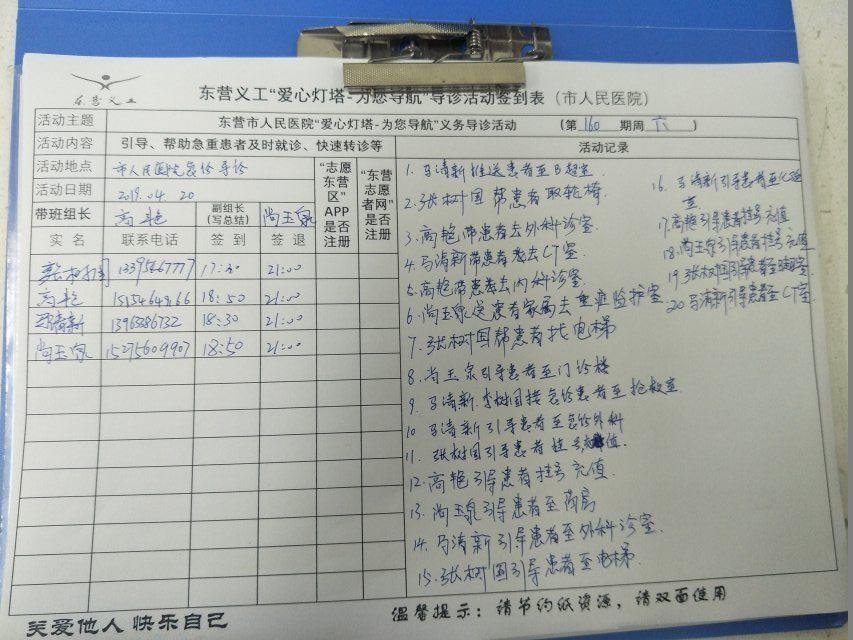 东营义工
东营义工“爱心灯塔-为您导航”导诊活动签到表（市人民医院）
活动主题 东营市人民医院“爱心灯塔-为您导航”义务导诊活动 （第 160 期周 六 ）
活动内容 引导、帮助急重患者及时就诊、快速转诊等
活动地点 市人民医院急诊导诊
活动日期 2019.04.20
带班组长 高艳 副组长（写总结） 尚玉泉
“志愿东营区”APP是否注册
“东营志愿者网”是否注册
实名 联系电话 签到 签退
17:30 21:00
高艳 18:50 21:00
马清新 13963386732 18:30 21:00
尚玉泉 15275609907 18:50 21:00
活动记录
1. 马清新推送患者至B超室
2. 张树国帮患者取轮椅
3. 高艳带患者去外科诊室
4. 马清新带患者去CT室
5. 高艳带患者去内科诊室
6. 尚玉泉送患者家属去重症监护室
7. 张树国帮患者找电梯
8. 尚玉泉引导患者至门诊楼
9. 马清新.李树国接急诊患者至抢救室
10 马清新引导患者至急诊外科
11. 张树国引导患者挂号充值.
12. 高艳引导患者挂号充值.
13. 尚玉泉引导患者至药房
14. 马清新引导患者至外科诊室.
15. 张树国引导患者至电梯
16. 马清新引导患者至
室
17. 高艳引导患者挂号充值
18. 尚玉泉引导患者挂号充值
19. 张树国引导患者至
20 马清新引导患者至CT室
关爱他人 快乐自己
温馨提示：请节约纸资源，请双面使用